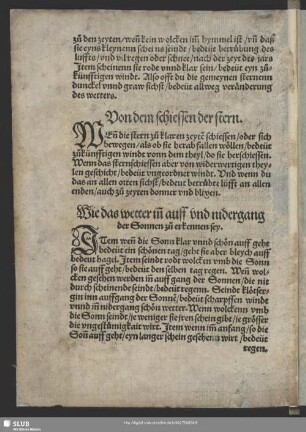 zů den zeyten/wen̄ kein wolcken im̄ hymmel ist/vn̄ das
sie eyns kleynenn scheins seindt/bedeüt betrübung des
luffts/vnd vil regen oder schnee/nach der zeyt des jars
Item scheinenn sie rode vnnd klar sein/bedeüt eyn zů=
künfftigen windt. Also offt du die gemeynen sternenn
dunckel vnnd graw sichst/bedeüt allweg veränderung
des wetters.
Von dem schiessen der stern.
WEn̄ die stern zů klaren zeytē schiessen/oder sich
bewegen/als ob sie herab fallen wöllen/bedeüt
zůkünfftigen windt vonn dem theyl/do sie herschiessen.
Wenn das sternschiessen aber von widerwertigen theyl
len geschicht/bedeüt vngeordnet windt. Vnd wenn du
das an allen orten sichst/bedeut betrübte lüfft an allen
enden/auch zů zeyten donner vnd blixen.
Wie das wetter im̄ auff vnd nidergang
der Sonnen zů erkennen sey.
ITem wen̄ die Sonn klar vnnd schön auff geht
bedeüt ein schönen tag/geht sie aber bleych auff
bedeüt hagel. Item seindt rodt wolcken vmb die Sonn
so sie auff geht/bedeüt den selben tag regen. Wen̄ wol=
cken gesehen werden im̄ auff gang der Sonnen/die nit
durch scheinende seindt/bedeüt regenn. Seindt klötzer
gin inn auffgang der Sonnē/bedeüt scharpffen windt
vnnd im̄ nidergang schön wetter. Wenn wolckenn vmb
die Sonn seindt/je weniger sie jren schein gibt/je grösser
die vngestümigkait wirt. Item wenn im̄ anfang/so die
Son̄ auff geht/eyn langer schein gesehen wirt/bedeüt
regen.
SLUB